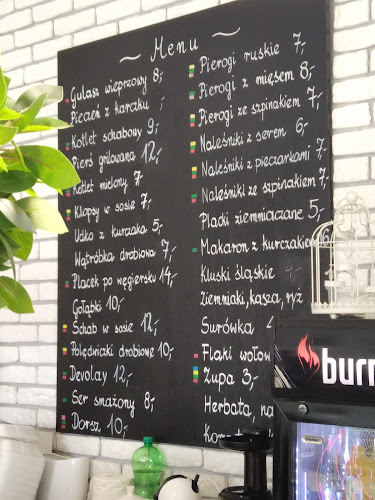 ~ Menu ~
Gulasz wieprzowy 8,-
Pieczeń z karczku ,-
Kotlet schabowy 9,-
Pierś grilowana 12,-
Kotlet mielony 7,-
Klopsy w sosie 7,-
Udko z kurczaka 5,-
Wątróbka drobiowa 7,-
Placek po węgiersku 14,-
Gołąbki 10,-
Schab w sosie 12,-
Polędwiczki drobiowe 10,-
Devolay 12,-
Ser smażony 8,-
Dorsz 10,-
Pierogi ruskie 7,-
Pierogi z mięsem 8,-
Pierogi ze szpinakiem 7,-
Naleśniki z serem 6,-
Naleśniki z pieczarkami 7,-
Naleśniki ze szpinakiem 7,-
Placki ziemniaczane 5,-
Makaron z kurczakiem
Kluski śląskie 4,-
Ziemniaki, kasza, ryż
Surówka
Flaki wołow
Zupa 3,-
Herbata, na
burn